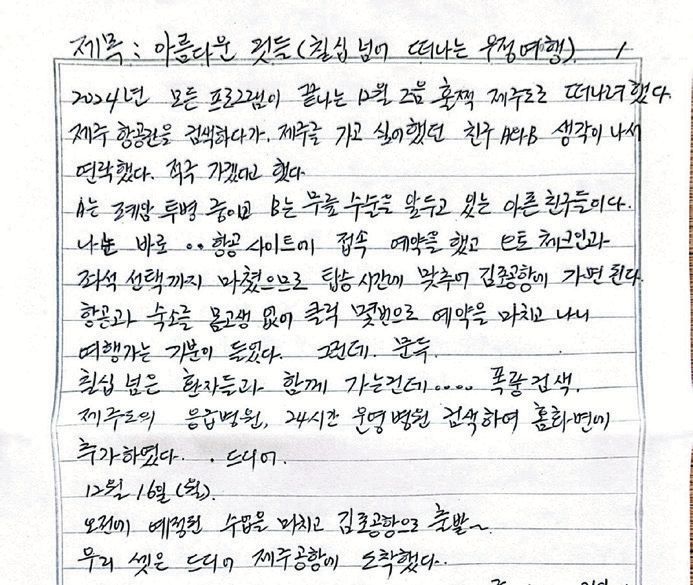 제목: 아름다운 것들(칠십 넘어 떠나는 우정여행) 1
2024년 모든 프로그램이 끝나는 12월 그믐 훌쩍 제주도로 떠나려 했다.
제주 항공권을 검색하다가, 제주를 가고 싶어했던 친구 A와B 생각이 나서
연락했다. 적극 가겠다고 했다.
A는 폐암 투병 중이고 B는 무릎 수술을 앞두고 있는 아픈 친구들이다.
나는 바로 ·· 항공 사이트에 접속 예약을 했고 e토 체크인과
좌석 선택까지 마쳤으므로 탑승시간에 맞추어 김포공항에 가면 된다.
항공과 숙소를 몸고생 없이 클릭 몇번으로 예약을 마치고 나니
여행가는 기분이 들었다. 그런데. 문득.
칠십 넘은 환자들과 함께 가는건데.... 폭풍검색.
제주도의 응급병원, 24시간 운영병원 검색하여 홈화면에
추가하였다. . 드디어.
12월 16일(월).
오전에 예정된 수업을 마치고 김포공항으로 출발~
우리 셋은 드디어 제주공항에 도착했다..